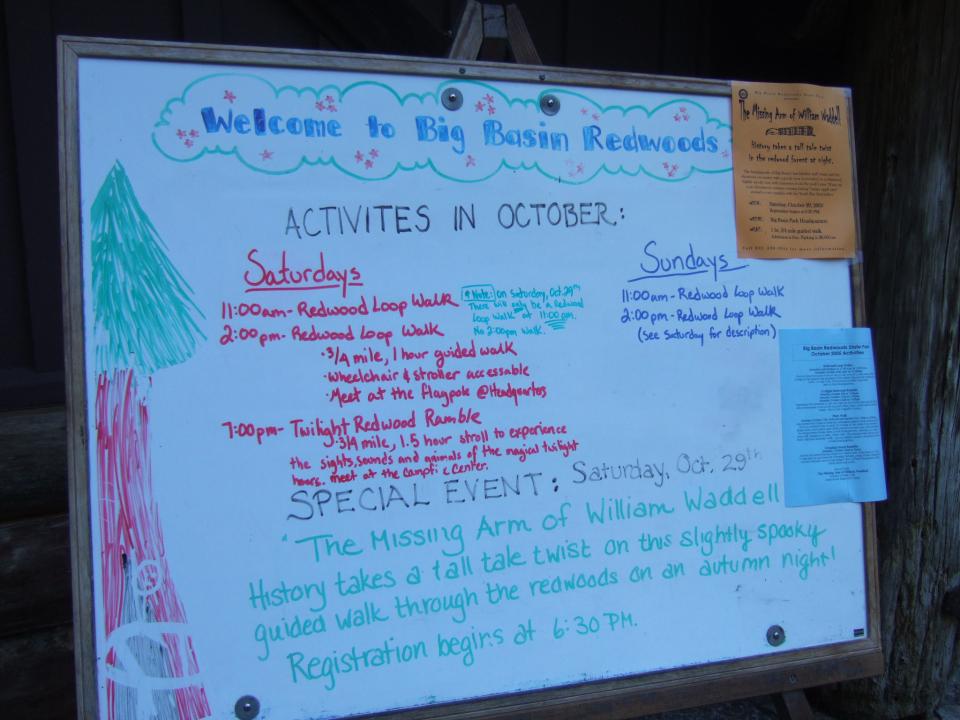 Welcome to Big Basin Redwoods
ACTIVITES IN OCTOBER:
Saturdays
11:00am- Redwood Loop Walk
2:00pm- Redwood Loop Walk
·3/4 mile, 1 hour guided walk
·Wheelchair & stroller accessable
·Meet at the flagpole @Headquarters
7:00pm- Twilight Redwood Ramble
·3/4 mile, 1.5 hour stroll to experience
the sights, sounds and animals of the magical twilight
hours. meet at the Campfi e Center.
*Note: On Saturday, Oct. 29th
There will only be a Redwood
Loop Walk at 11:00 am.
No 2:00pm Walk.
Sundays
11:00am- Redwood Loop Walk
2:00pm- Redwood Loop Walk
(see Saturday for description)
SPECIAL EVENT: Saturday, Oct. 29th
"The Missing Arm of William Waddell
History takes a tall tale twist on this slightly spooky
guided walk through the redwoods on an autumn night!
Registration begins at 6:30 PM.
Big Basin Redwoods State Park
The Missing Arm of William Waddell
History takes a tall tale twist
in the redwood forest at night.
Saturday, October 29, 2005
Registration begins at 6:30 PM
Big Basin Park Headquarters
Big Basin Redwoods State Par
October 2005 Activities